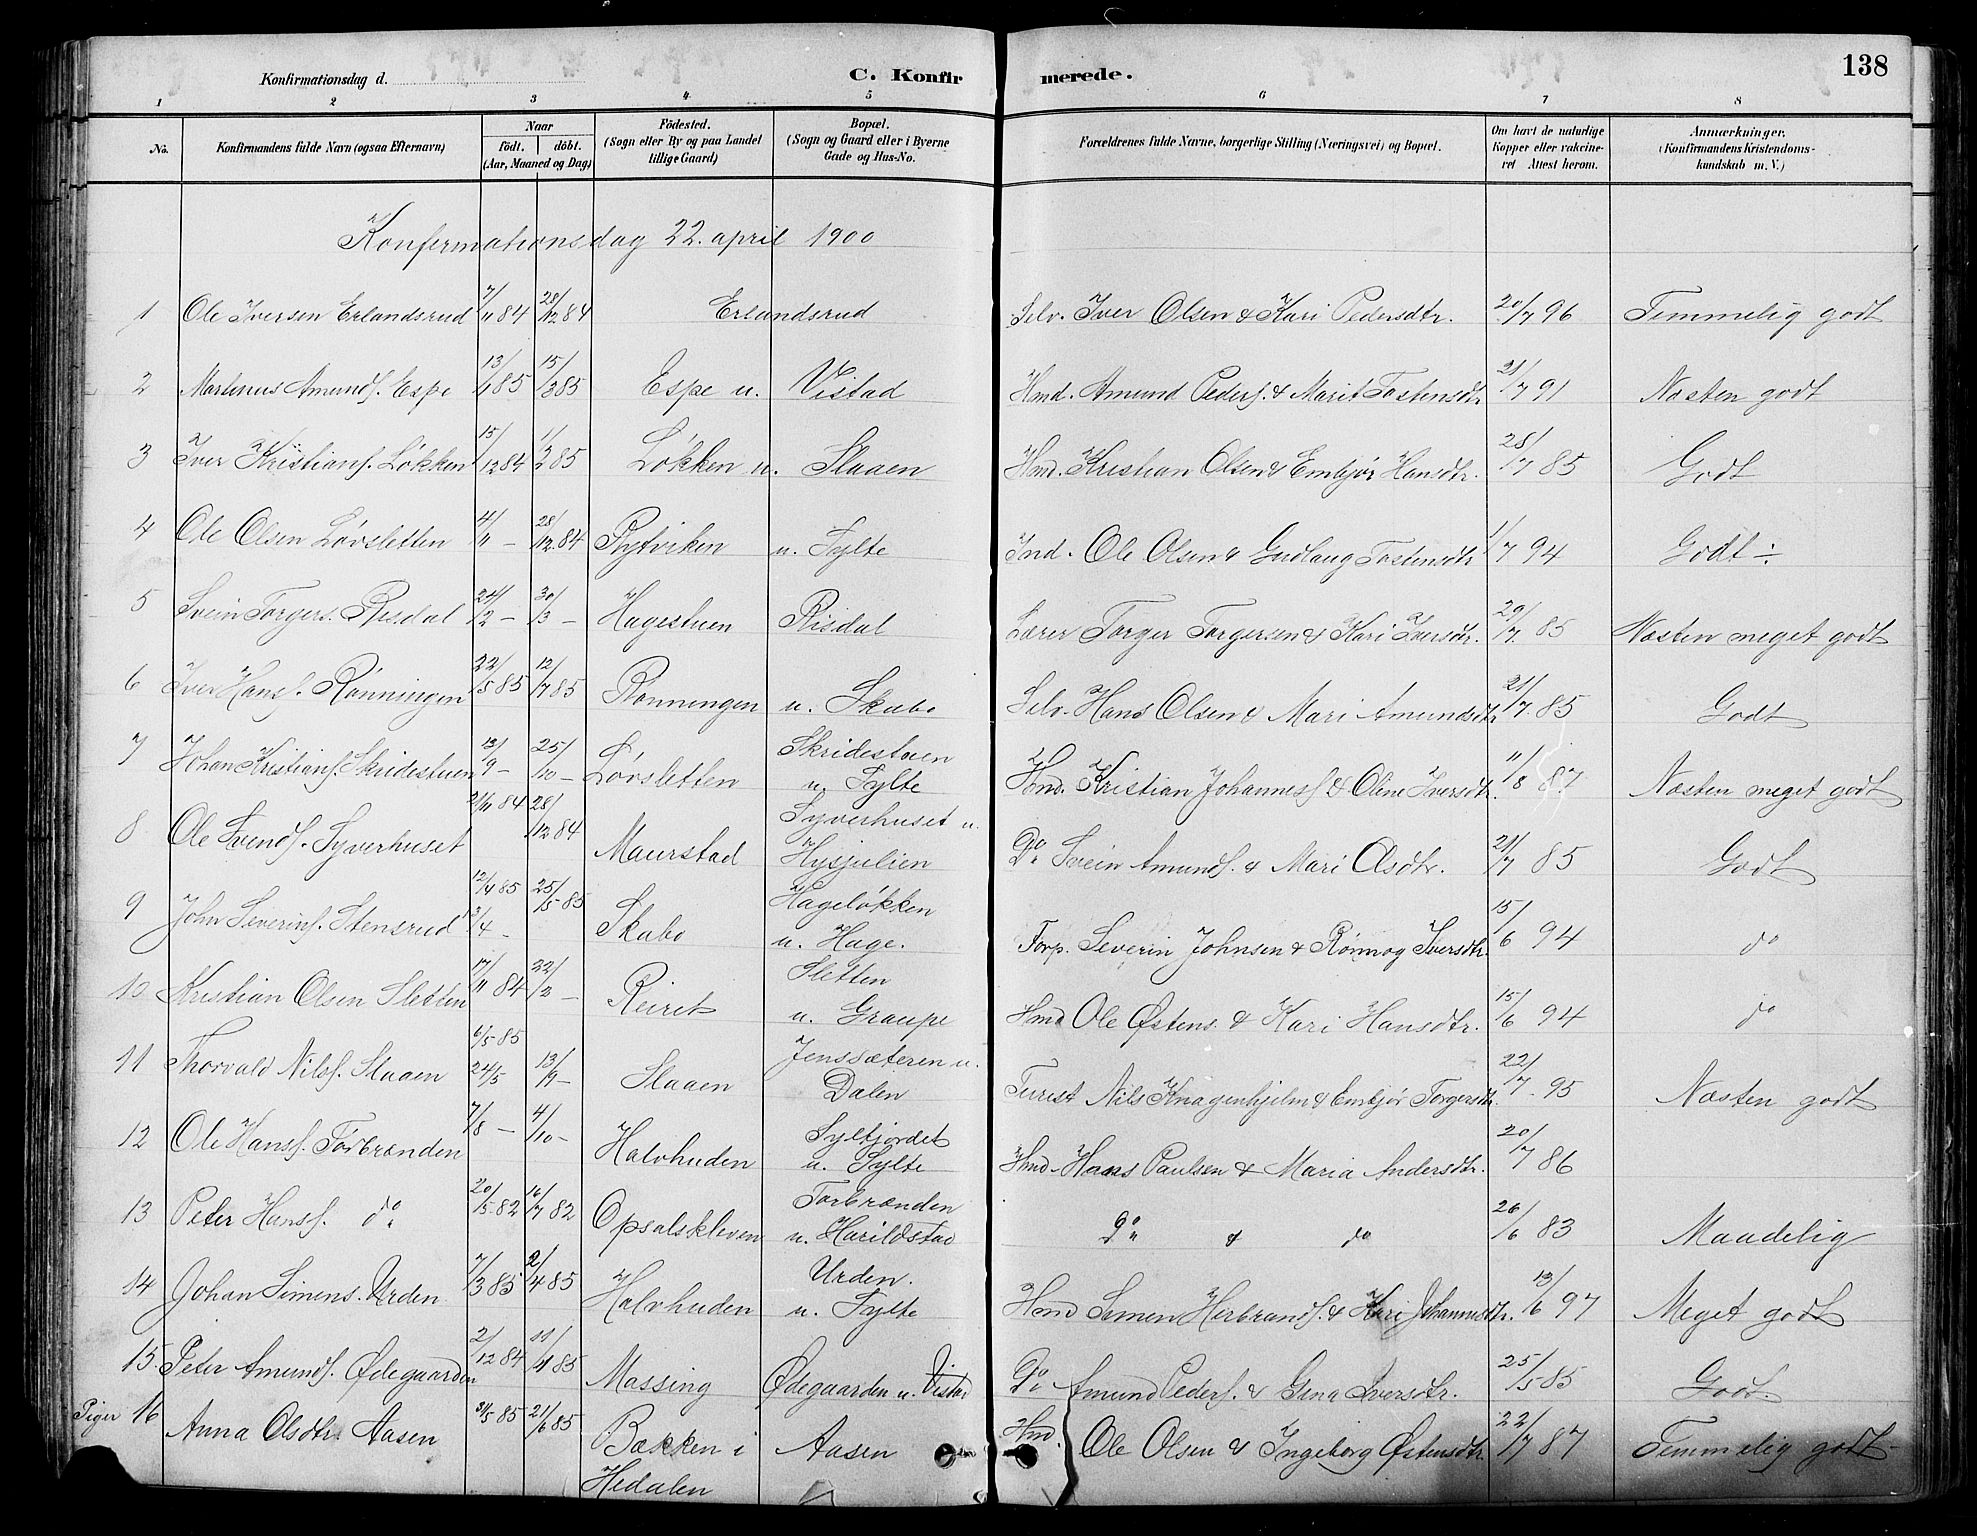 138
Konfirmationsdag d. C. Konfirmerede.
1 2 3 4 5 6 7 8
No. Konfirmandens fulde Navn (ogsaa Efternavn) Naar födt. döbt. (Aar, Maaned og Dag) Födested. (Sogn eller By og paa Landet tillige Gaard) Bopæl. (Sogn og Gaard eller i Byerne Gade og Hus-No. Forældrenes fulde Navne, borgerlige Stilling (Næringsvei) og Bopæl. Om havt de naturlige Kopper eller vakcineret Attest herom. Anmærkninger. (Konfirmandens Kristendomskundskab m. V.)
Konfirmationsdag 22. april 1900
1 Ole Iversen Erlandsrud 7/11 84 28/12 84 Erlandsrud Selv. Iver Olsen & Kari Pedersdtr. 20/7 96 Temmelig godt
2 Martinus Amunds. Espe 13/1 85 15/3 85 Espe u. Vistad Hmd. Amund Peders. & Marit Tostensdtr 21/7 91 Næsten godt
3 Iver Kristians. Løkken 15/12 84 1/2 85 Løkken u. Slaaen Hmd. Kristian Olsen & Embjør Hansdtr. 28/7 85 Godt
4 Ole Olsen Løvsletten 4/11 – 28/12 84 Rytviken u. Sylte Ind. Ole Olsen & Gudlaug Tostensdtr 1/7 94 Godt ÷
5 Svein Torgers. Risdal 24/2 – 30/3 – Hagestuen Risdal Lærer Torger Torgersen & Kari Iversdtr. 29/7 85 Næsten meget godt
6 Iver Hans. Rønningen 22/5 85 12/7 85 Rønningen u. Skabo Selv. Hans Olsen & Mari Amundsdtr 21/7 85 Godt
7 Johan Kristians. Skridestuen 13/9 – 25/10 – Løvsletten Skridestuen u. Sylte Hmd. Kristian Johannes. & Oline Iversdtr. 11/8 87 Næsten meget godt
8 Ole Svends. Syverhuset 21/11 84 28/12 84 Maurstad Syverhuset u. Hysjulien Do Svein Amunds. & Mari Olsdtr. 21/7 85 Godt
9 John Severins. Stensrud 12/4 85 3/4 – 25/5 85 Skabo Hageløkken u. Hage. Forp. Severin Johnsen & Rønnog Iversdtr. 15/6 94 do
10 Kristian Olsen Sletten 17/11 84 22/2 – Reiret Sletten u. Graupe Hmd Ole Østens. & Kari Hansdtr. 15/6 94 do
11 Thorvald Nils. Slaaen 6/5 85 24/5 13/9 – Slaaen Jenssæteren u. Dalen Turist Nils Knagenhjelm & Embjør Torgersdtr. 22/7 95 Næsten godt
12 Ole Hans. Torbrænden 7/8 – 4/10 – Halvhuden Syltjordet u. Sylte Hmd. Hans Paulsen & Maria Andersdtr. 20/7 86
13 Peter Hans. do 20/5 82 16/7 82 Opsalskleven Torbrænden u. Harildstad Do & do 26/6 83 Maadelig
14 Johan Simens. Urden 7/3 85 2/4 85 Halvhuden Urden. u. Sylte Hmd Simen Herbrands. & Kari Johannesdtr. 13/6 97 Meget godt
15. Peter Amunds. Ødegaarden 2/12 84 11/1 85 Massing Ødegaarden u. Vistad Do Amund Peders. & Gina Iversdtr. 25/5 85 Godt.
Piger 16 Anna Olsdtr. Aasen 31/5 85 21/6 85 Bækken i Hedalen Aasen Hmd. Ole Olsen & Ingeborg Østensdtr 22/7 87 Temmelig godt